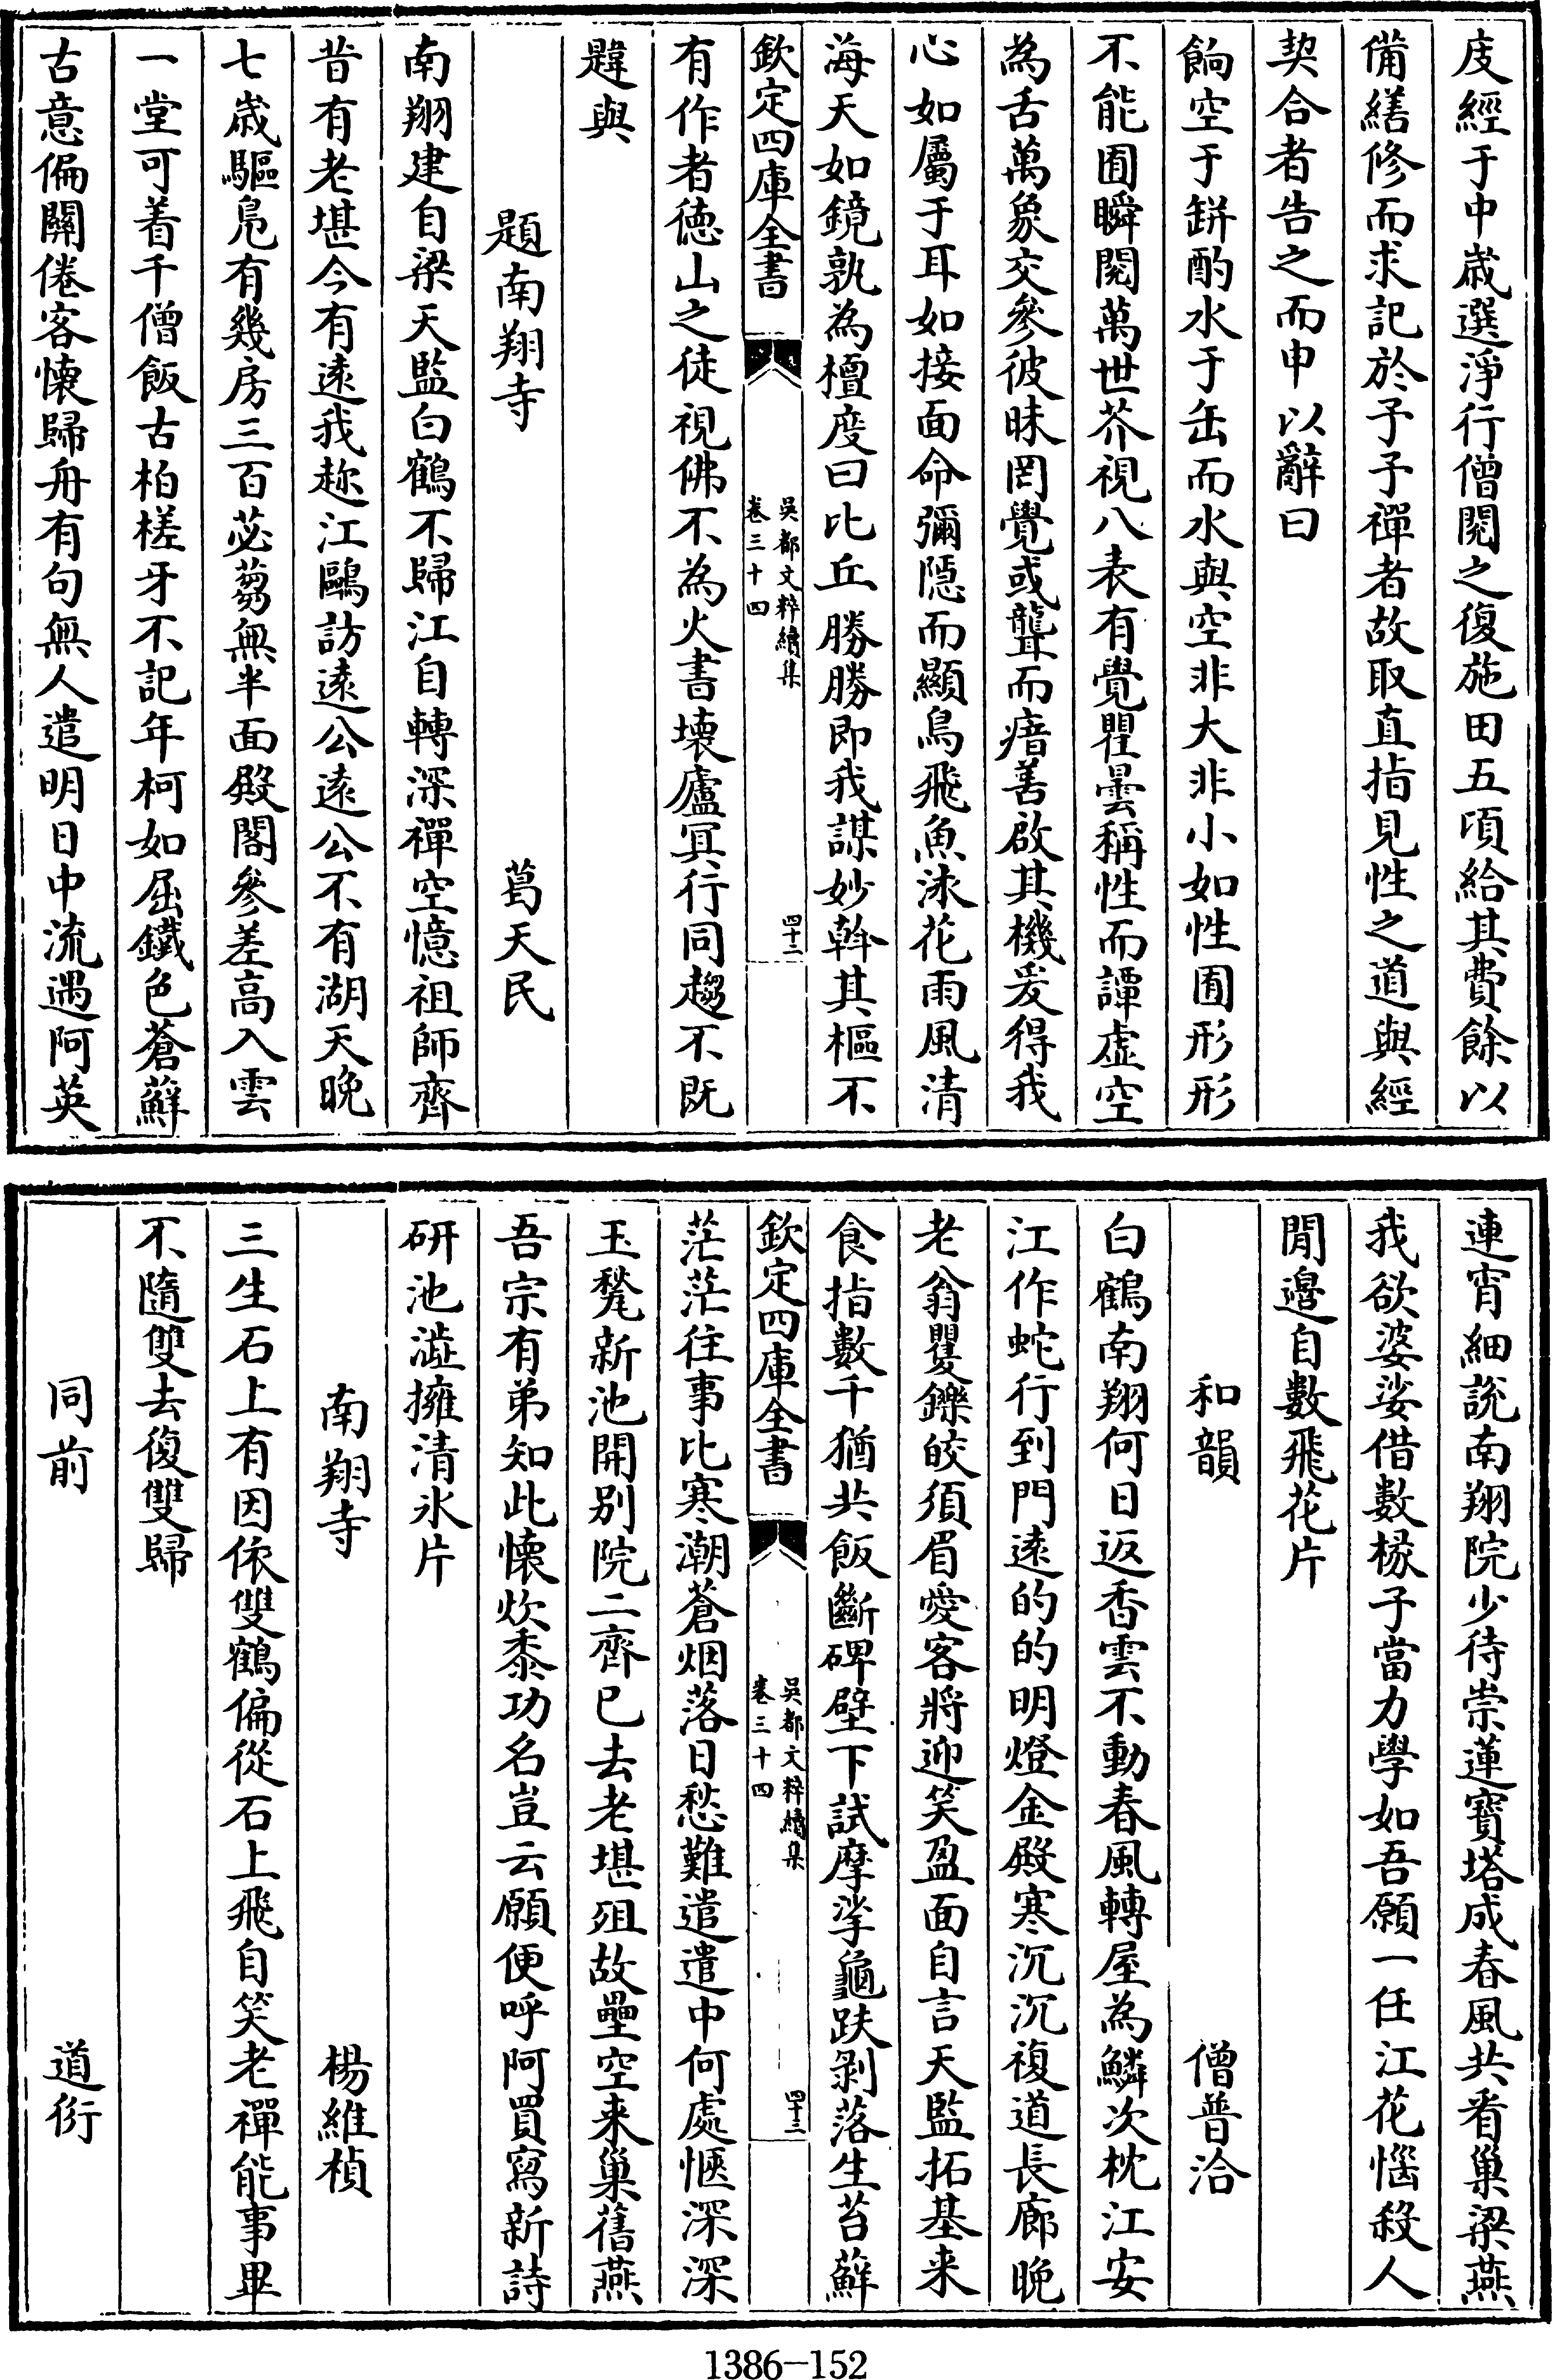 庋經于中嵗選淨行僧閱之復施田五頃給其費餘以
備繕修而求記於予予禪者故取直指見性之道與經
契合者告之而申以辭曰
餉空于缾酌水于缶而水與空非大非小如性囿形形
不能囿瞬閱萬世芥視八表有覺瞿曇稱性而譚虚空
為舌萬象交參彼昧罔覺或聾而瘖善啟其機爰得我
心如屬于耳如接面命彌隠而顯鳥飛魚泳花雨風清
海天如鏡孰為檀度曰比丘勝勝即我謀妙斡其樞不
欽定四庫全書
吳都文粹續集
卷三十四
四十二
有作者徳山之徒視佛不為火書壞廬冥行同趨不既
韙與
題南翔寺 葛天民
南翔建自梁天監白鶴不歸江自轉深禪空憶祖師齊
昔有老堪今有逺我趂江鷗訪逺公逺公不有湖天晩
七嵗驅鳬有幾房三百苾蒭無半面殿閣參差髙入雲
一堂可着千僧飯古柏槎牙不記年柯如屈鐵色蒼蘚
古意偏闗倦客懐歸舟有句無人遣明日中流遇阿英
連宵細說南翔院少待崇蓮寳塔成春風共看巢梁燕
我欲婆娑借數椽子當力學如吾願一任江花惱殺人
閒邉自數飛花片
和韻 僧普洽
白鶴南翔何日返香雲不動春風轉屋為鱗次枕江安
江作蛇行到門逺的的明燈金殿寒沉沉複道長廊晩
老翁矍鑠皎須眉愛客將迎笑盈面自言天監拓基来
食指數千猶共飯斷碑壁下試摩挲龜趺剝落生苔蘚
欽定四庫全書
吳都文粹續集
卷三十四
四十三
茫茫往事比寒潮蒼烟落日愁難遣遣中何處愜深深
玉甃新池開别院二齊已去老堪殂故壘空来巢舊燕
吾宗有弟知此懐炊黍功名豈云願便呼阿買寫新詩
研池澁擁清氷片
南翔寺 楊維楨
三生石上有因依雙鶴偏從石上飛自笑老禪能事畢
不隨雙去復雙歸
同前 道衍
1386—152